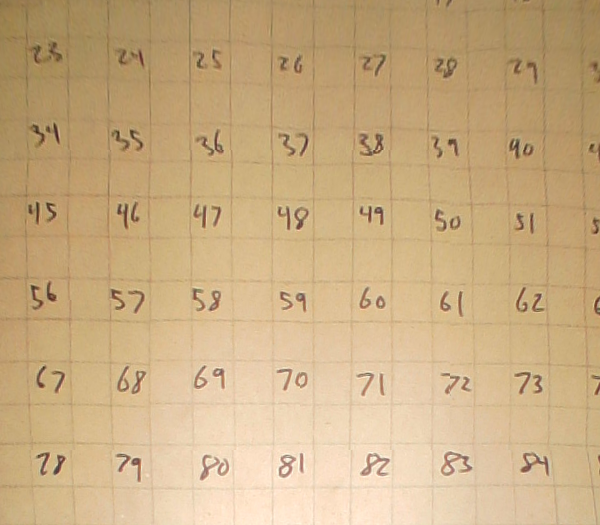 23 24 25 26 27 28 29
34 35 36 37 38 39 40
45 46 47 48 49 50 51
56 57 58 59 60 61 62
67 68 69 70 71 72 73
78 79 80 81 82 83 84